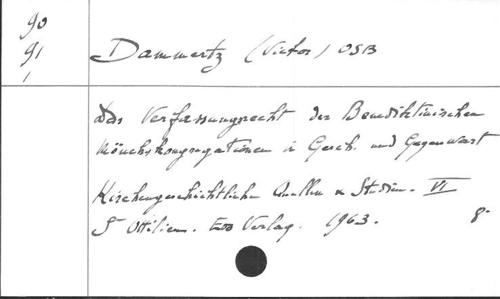 90
91
1
Dammertz (Victor) OSB
Das Verfassungsrecht der Benediktinischen
Mönchskongregationen in Gesch. und Gegenwart
Kirchengeschichtliche Quellen & Studien. VI
St Ottilien. Eos Verlag. 1963. 8°